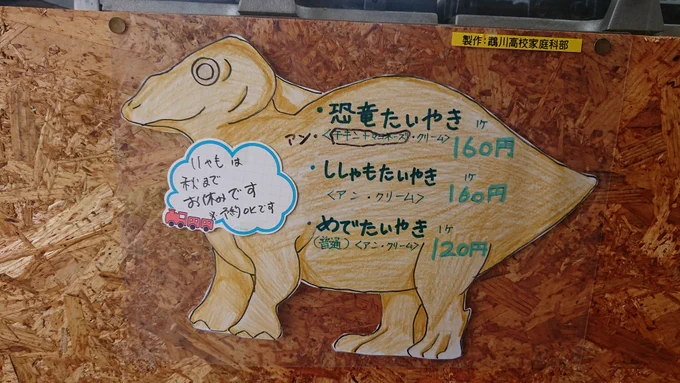 製作：鵡川高校家庭科部
・恐竜たいやき 1ケ
アン・<チキン+マヨネーズ・クリーム> 160円
・ししゃもたいやき 1ケ
<アン・クリーム> 160円
・めでたいやき 1ケ
(普通) <アン・クリーム> 120円
ししゃもは
秋まで
お休みです
※予約OKです